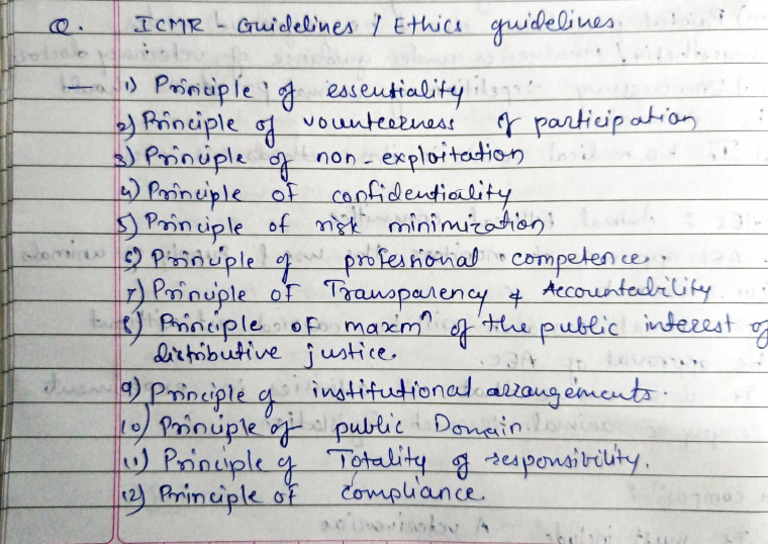 Q. ICMR - Guidelines / Ethics guidelines.
1) Principle of essentiality
2) Principle of volunteerness of participation
3) Principle of non-exploitation
4) Principle of confidentiality
5) Principle of risk minimization
6) Principle of professional competence.
7) Principle of Transparency & Accountability
8) Principle of maxmⁿ of the public interest of
distributive justice.
9) Principle of institutional arrangements.
10) Principle of public Domain.
11) Principle of Totality of responsibility.
12) Principle of compliance.